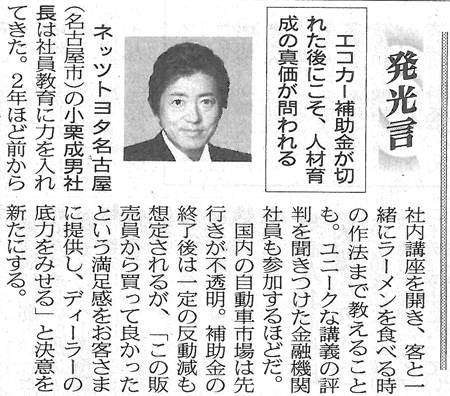 発光言
エコカー補助金が切
れた後にこそ、人材育
成の真価が問われる
ネッツトヨタ名古屋
(名古屋市)の小栗成男社
長は社員教育に力を入れ
てきた。2年ほど前から
社内講座を開き、客と一
緒にラーメンを食べる時
の作法まで教えること
も。ユニークな講義の評
判を聞きつけた金融機関
社員も参加するほどだ。
国内の自動車市場は先
行きが不透明。補助金の
終了後は一定の反動減も
想定されるが、「この販
売員から買って良かった
という満足感をお客さま
に提供し、ディーラーの
底力をみせる」と決意を
新たにする。